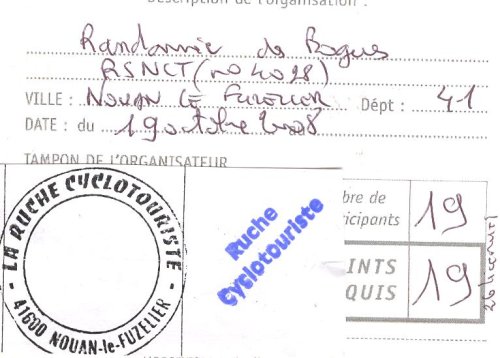 Description de l'organisation :
Randonnée de Bogues
RSNCT (no 4098)
VILLE : NOUAN LE FUZELIER Dépt : 41
DATE : du 19 octobre 2008
TAMPON DE L'ORGANISATEUR
LA RUCHE CYCLOTOURISTE
41600 NOUAN-le-FUZELIER
Ruche
Cyclotouriste
bre de
ticipants 19
INTS
QUIS 19